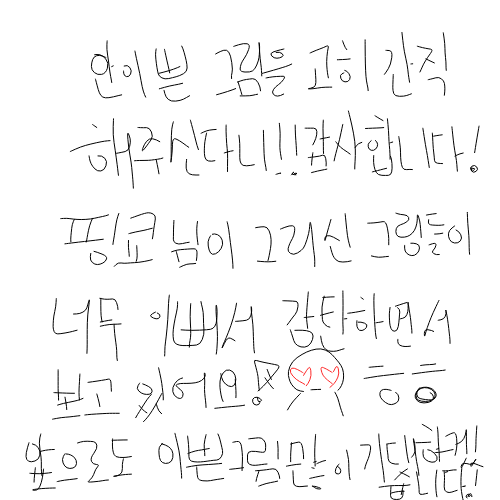 안이쁜 그림을 고히 간직
해주신다니!! 감사합니다!
핑쿄님이 그리신 그림들이
너무 이뻐서 감탄하면서
보고 있어요! ㅎㅎ
앞으로도 이쁜그림만이 기대할게!
습니다!!